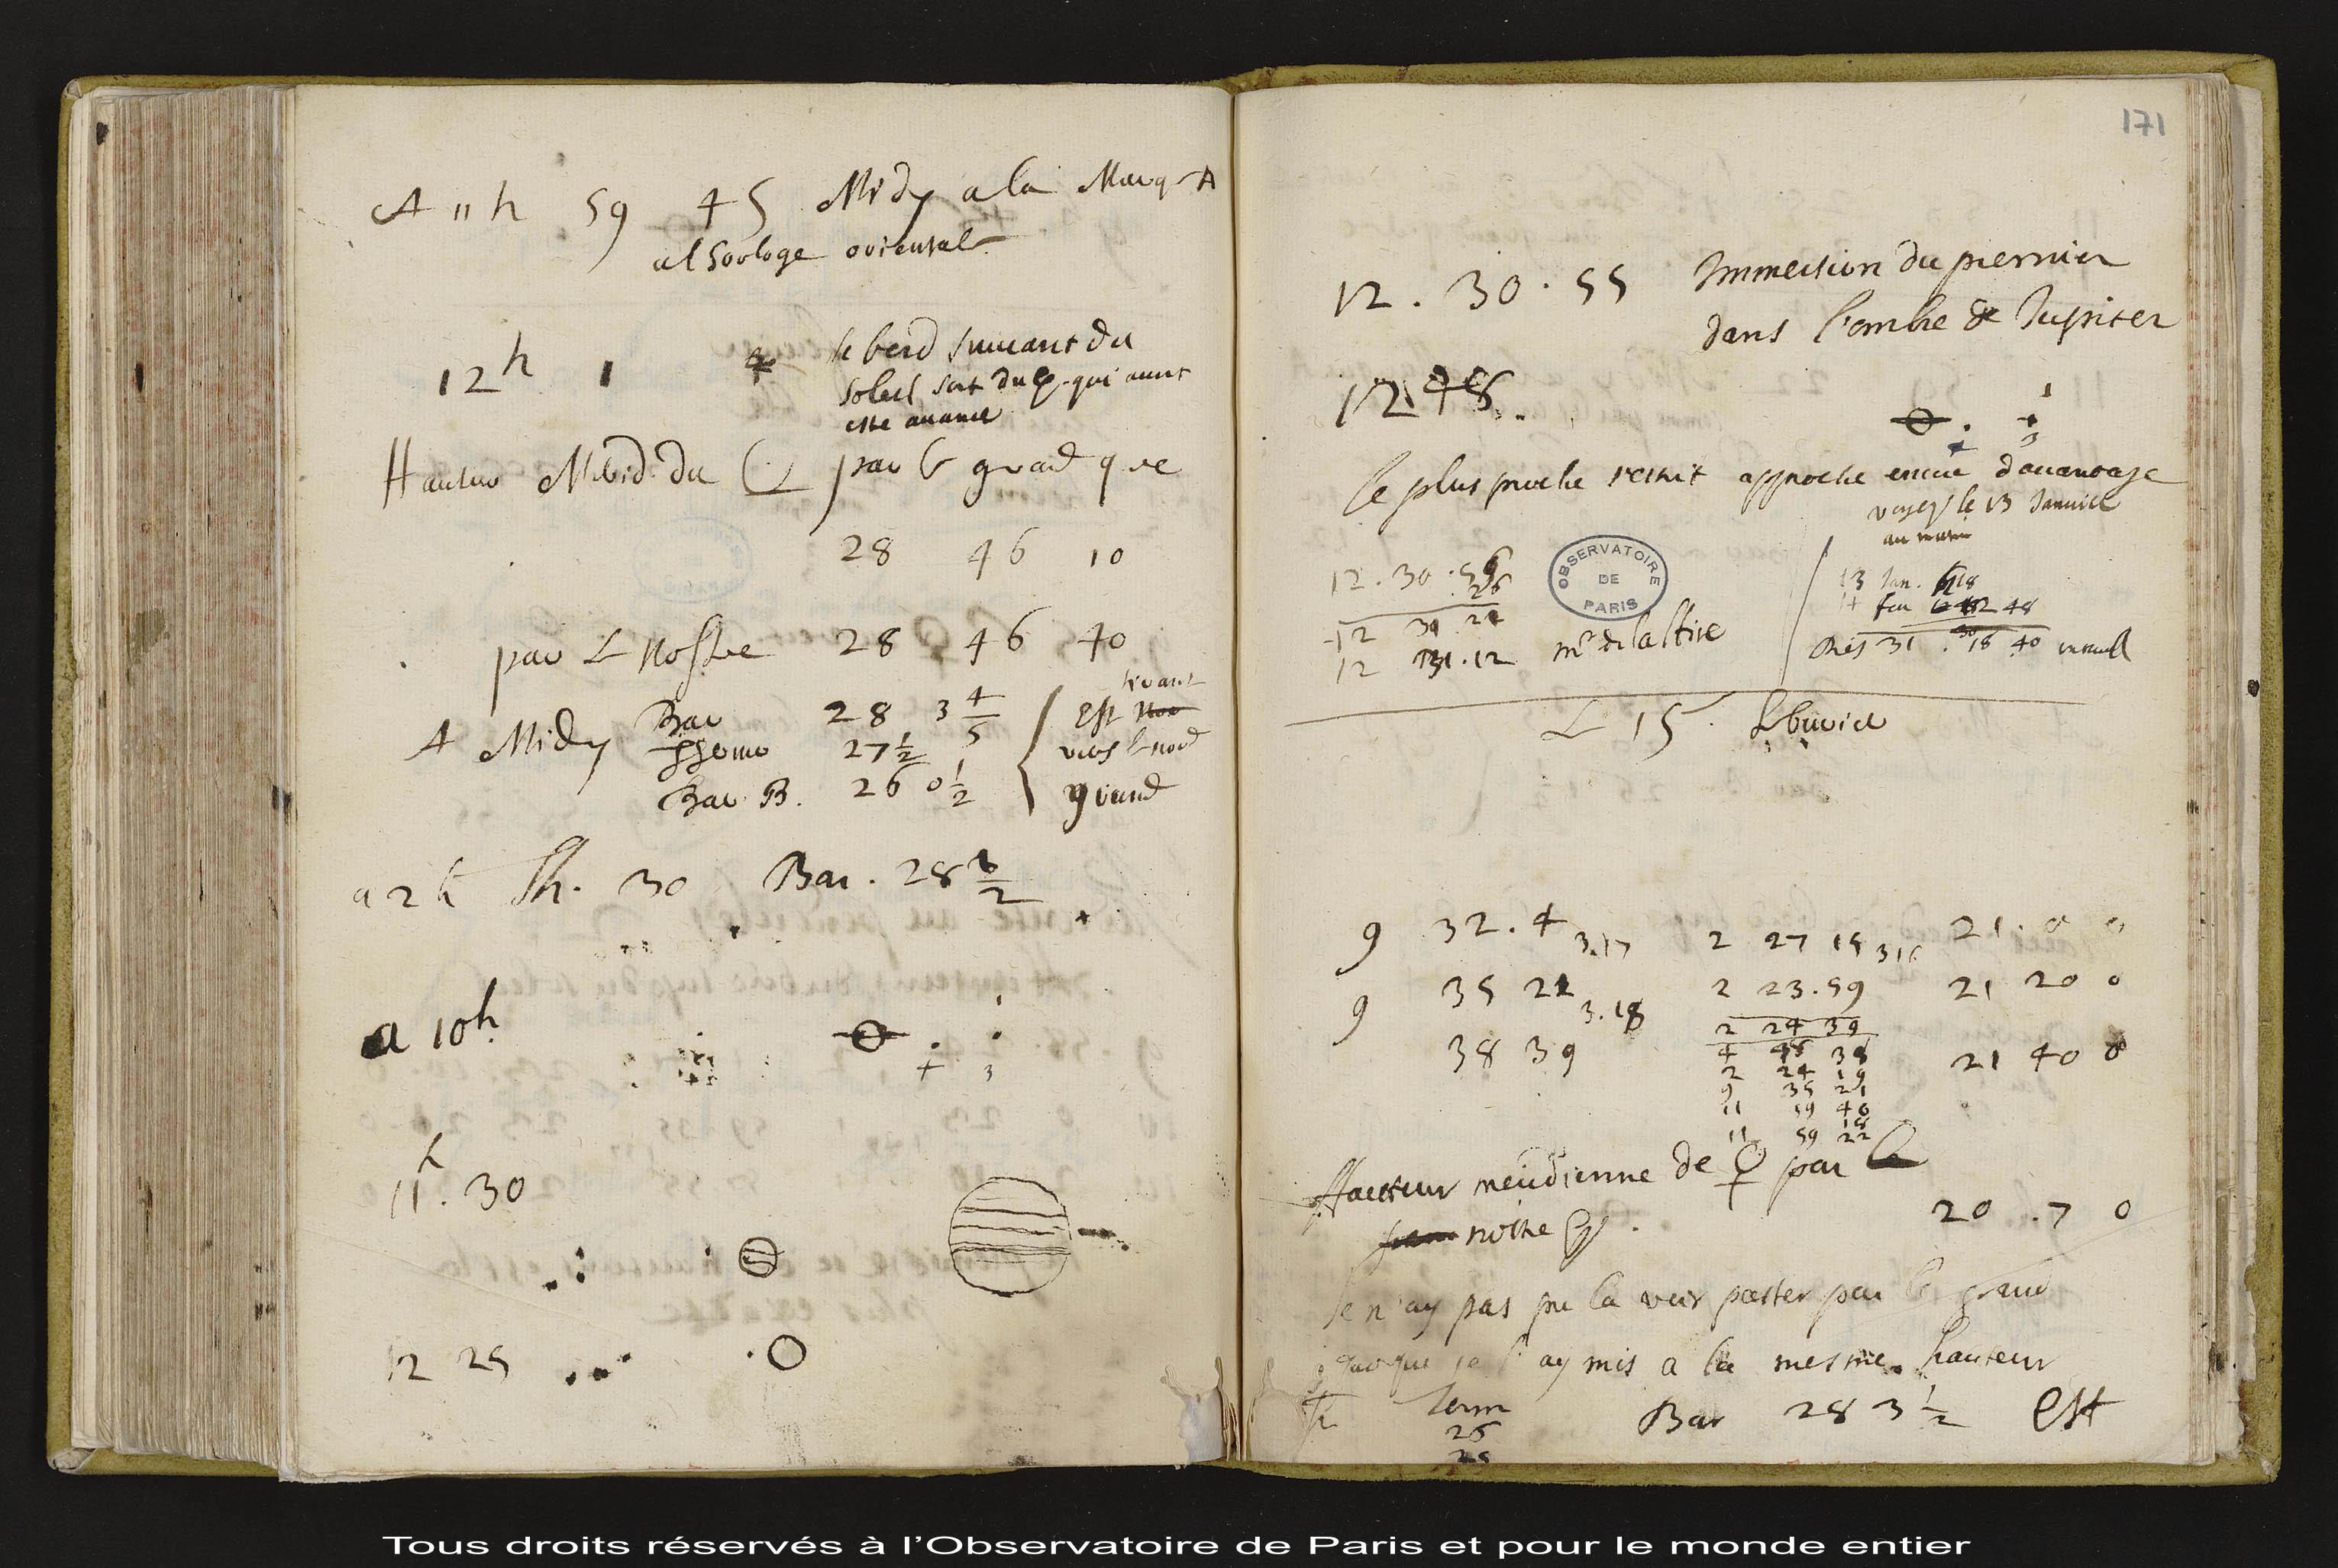 A 11 h 59 45 Midy a la Marq A
a l horloge orientale
12h 1 le bord suivant du
Soleil sort du qui avoit
esté avancé
Hauteur Merid. du par le grand q
28 46 10
par le nostre 28 46 40
A Midy Bar 28 3 4/5 Est tirant
Thermo 27 1/2 vers le nord
Bar B. 26 0 1/2 grand
a 2 h Th. 30 Bar. 28
a 10h
1
4 3
11h. 30
12 25
171
12. 30. 55 Immersion du premier
dans l'ombre de Jupiter
12 48
1
4 3
le plus proche s'estoit approché encore davantage
voyez le 13 Janvier
au matin
12. 30. 56
26
12 31. 12 mr de la Hire
13 Jan.
14 feu 12 48
31 18 40
OBSERVATOIRE
DE
PARIS
Le 15. Febvrier
9 32. 4 2 27 15 21. 0 0
3.17
9 35 21 2 23. 59 21 20 0
3. 18
2 24 39
38 39 21 40 0
4 38
2 24 19
9 35 21
11 59 40
18
11 59 22
Hauteur meridienne de ♀ par le
nostre
20. 7 0
Je n'ay pas pu la voir passer par le grand
quoique je l'ay mis a la mesme hauteur
Term Bar 28 3 1/2 Est
26
Tous droits réservés à l'Observatoire de Paris et pour le monde entier